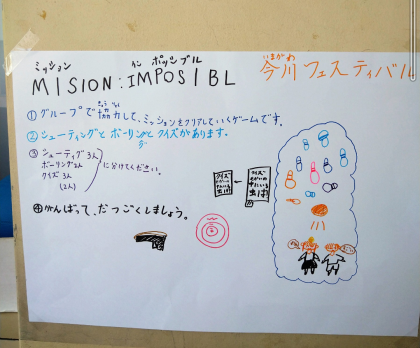 ミッション インポッシブル
MISION:IMPOSIBL
いまがわ
今川フェスティバル
①グループで協力して、ミッションをクリアしていくゲームです。
きょうりょく
②シューティングとボーリングとクイズがあります。
③シューティグ3人
ボーリング3人
クイズ 3人
(2人)
に分けてください。
④がんばって、だっごくしましょう。
クイズ
出ば
クイズ
出ば